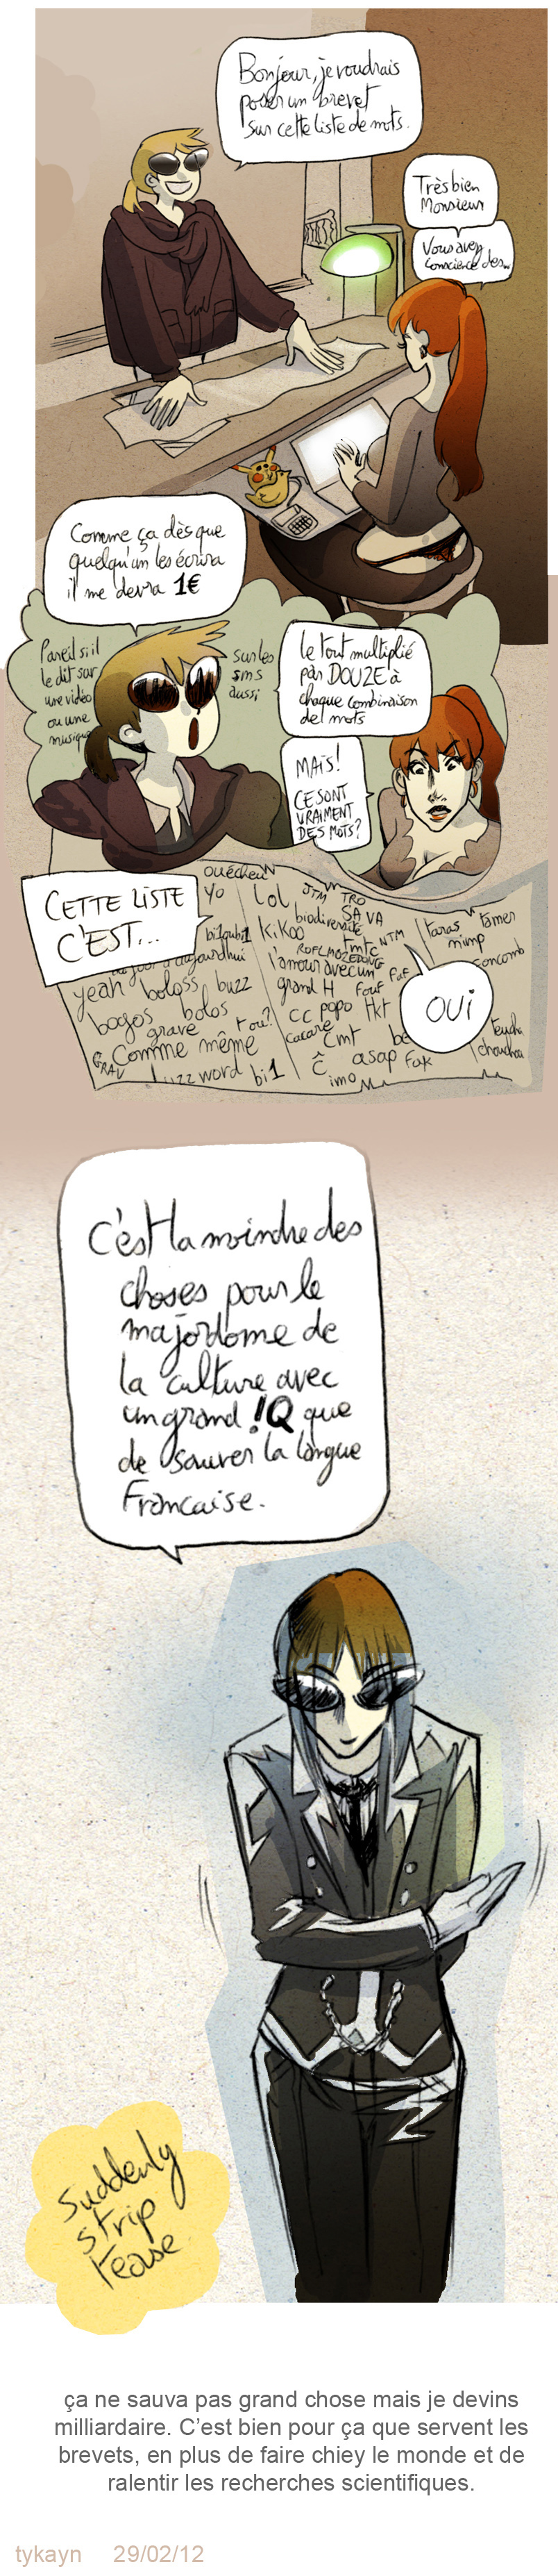 Bonjour, je voudrais
poser un brevet
sur cette liste de mots.
Très bien
Monsieur
Vous avez
conscience des...
Comme ça dès que
quelqu'un les écrira
il me devra 1€
Pareil si il
le dit sur
une vidéo
ou une
musique
sur les
sms
aussi
Le tout multiplié
par DOUZE à
chaque combinaison
de mots
MAIS!
CE SONT
VRAIMENT
DES MOTS?
CETTE LISTE
C'EST...
ouéche
yo
lol
JTM
TRO
SA VA
biodiversité
kikoo
ROFLMAOZEDONG
tmtc
NTM
taras
tamer
mimp
concomb
aujourdhui
l'amour avec un
grand H
Fouf
yeah
boloss
buzz
bogos
bolos
grave
t ou?
cc
popo
tkt
cacare
cmt
OUI
GRAV
Comme même
asap
Fak
chouchou
word
bi1
imo
C'est la moindre des
choses pour le
majordome de
la culture avec
un grand !Q que
de sauver la langue
Francaise.
Suddenly
strip
tease
ça ne sauva pas grand chose mais je devins
milliardaire. C'est bien pour ça que servent les
brevets, en plus de faire chiey le monde et de
ralentir les recherches scientifiques.
tykayn 29/02/12